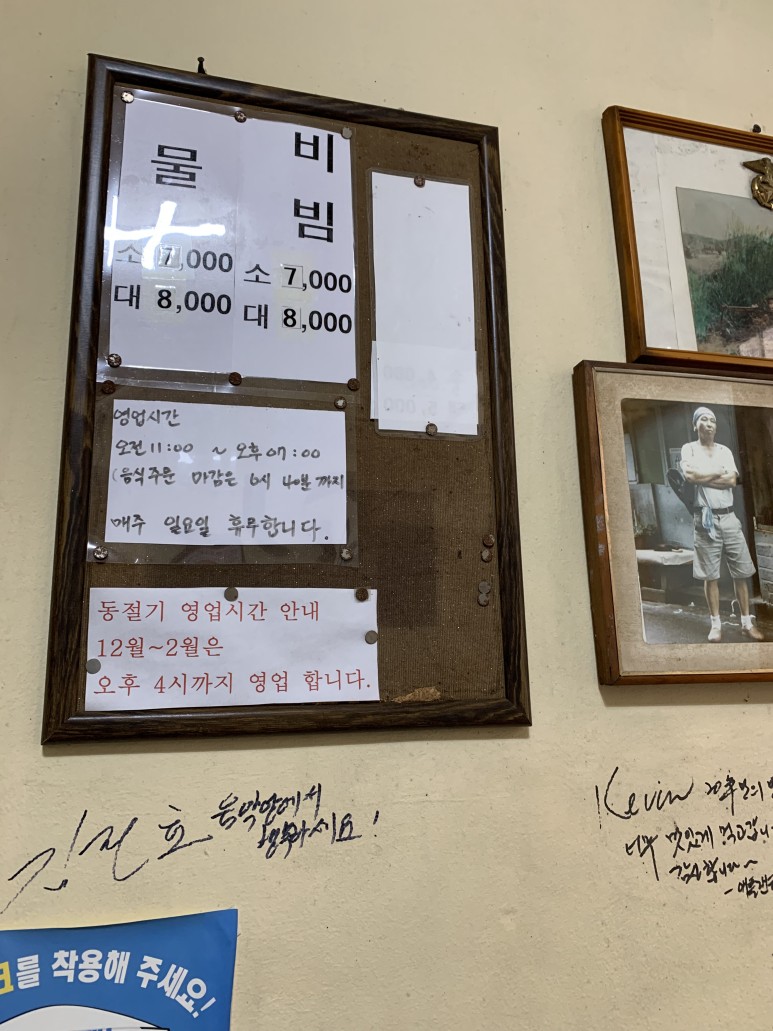 물
소 7,000
대 8,000
비
빔
소 7,000
대 8,000
영업시간
오전 11:00 ~ 오후 07:00
(음식주문 마감은 6시 40분까지
매주 일요일 휴무합니다.
동절기 영업시간 안내
12월~2월은
오후 4시까지 영업 합니다.
김진호 음악안에서
행복하세요!
Kevin 20후년의
너무 맛있게 먹고갑니
감사합니다~
크를 착용해 주세요!